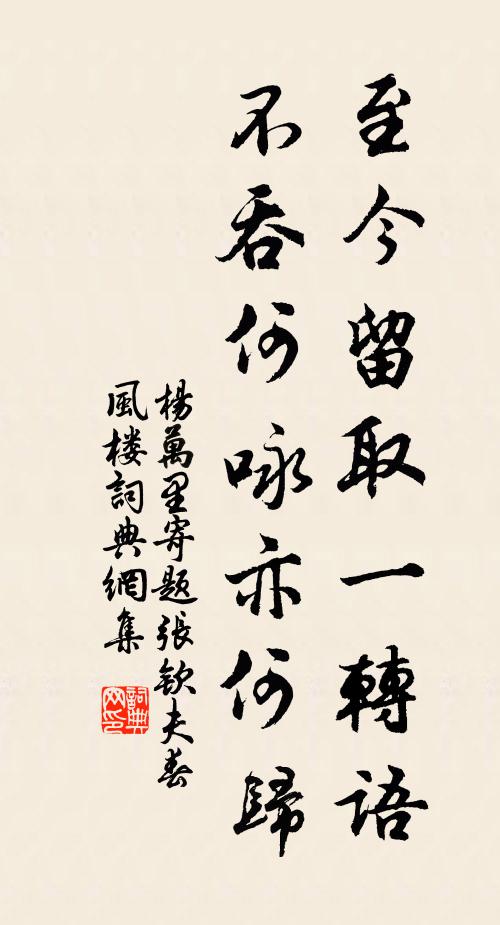 至今留取一轉語
不吞何咏亦何歸
楊萬里寄題張欽夫春
風楼詞典網集
詞典
网印